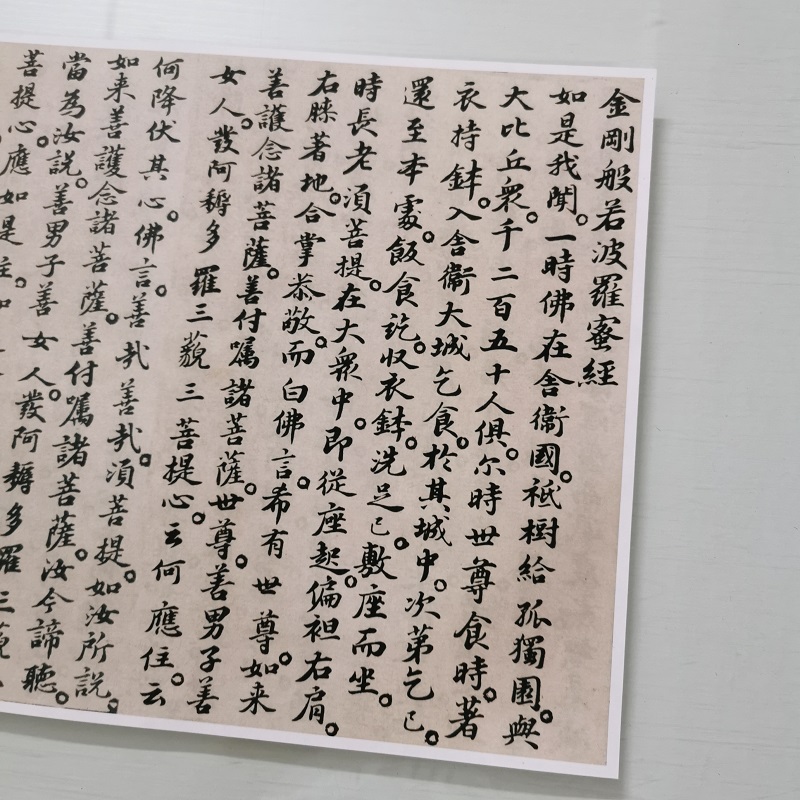 金剛般若波羅蜜經
如是我聞。一時佛在舍衞國。祇樹給孤獨園。與
大比丘衆。千二百五十人俱。尔時世尊食時。著
衣持鉢。入舍衞大城乞食。於其城中。次第乞已。
還至本處。飯食訖。収衣鉢。洗足已。敷座而坐。
時長老湏菩提。在大衆中。即從座起。偏袒右肩。
右膝著地。合掌恭敬。而白佛言。希有世尊。如来
善護念諸菩薩。善付嘱諸菩薩。世尊。善男子善
女人。發阿耨多羅三藐三菩提心。云何應住。云
何降伏其心。佛言。善哉善哉。湏菩提。如汝所說。
如来善護念諸菩薩。善付嘱諸菩薩。汝今諦聽。
當為汝說。善男子善女人。發阿耨多羅三藐
菩提心。應如是住。如